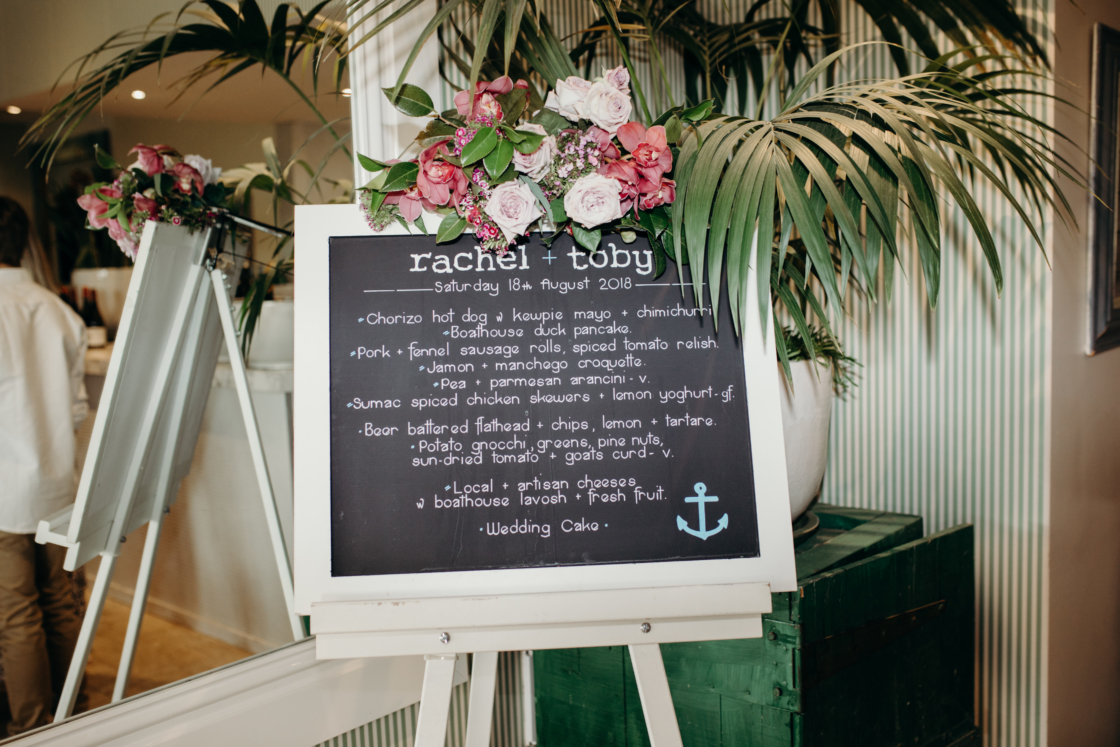 rachel + toby
Saturday 18th August 2018
Chorizo hot dog w kewpie mayo + chimichurri
Boathouse duck pancake.
Pork + fennel sausage rolls, spiced tomato relish.
Jamon + manchego croquette.
Pea + parmesan arancini - v.
Sumac spiced chicken skewers + lemon yoghurt - gf.
Beer battered flathead + chips, lemon + tartare.
Potato gnocchi, greens, pine nuts,
sun-dried tomato + goats curd - v.
Local + artisan cheeses
w boathouse lavosh + fresh fruit.
Wedding Cake